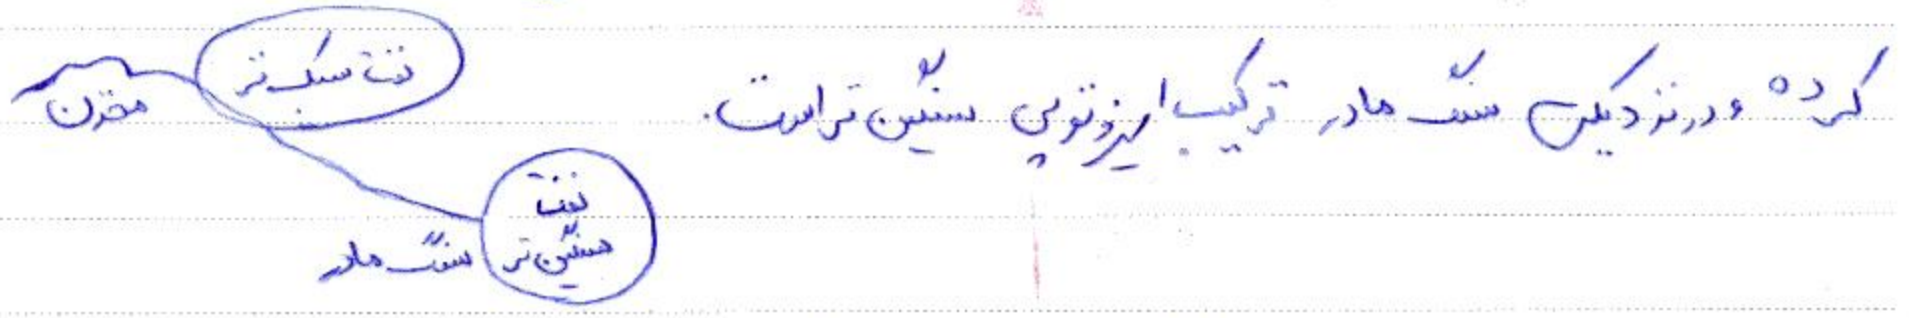 کرده و در نزدیکی سنگ مادر ترکیب ایزوتوپی سنگین تر است.
نفت سبک تر
مخزن
نفت
سنگین تر
سنگ مادر